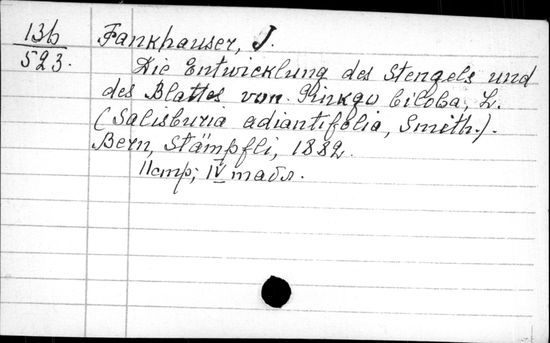 136
523.
Fankhauser, J.
Die Entwicklung des Stengels und
des Blattes von Ginkgo biloba, L.
(Salisburia adiantifolia, Smith.).
Bern, Stämpfli, 1882.
11 стр; IV табл.